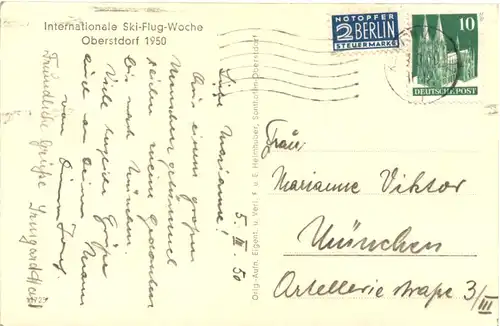 Internationale Ski-Flug-Woche
Oberstdorf 1950
NOTOPFER
2 BERLIN
STEUERMARKE
10
DEUTSCHE POST
5. III. 50
Liebe Marianne!
Aus einem großen
reichen meine Gedanken
bis nach München.
Viele herzliche Grüße
auch an deine Mann
von
Freundliche Grüße Irmgard
Orig.-Aufn. Eigent. u. Verl. v. u. E. Heimhuber, Sonthofen-Oberstdorf
Frau
Marianne Viktor
München
Artellerie straße 3/III